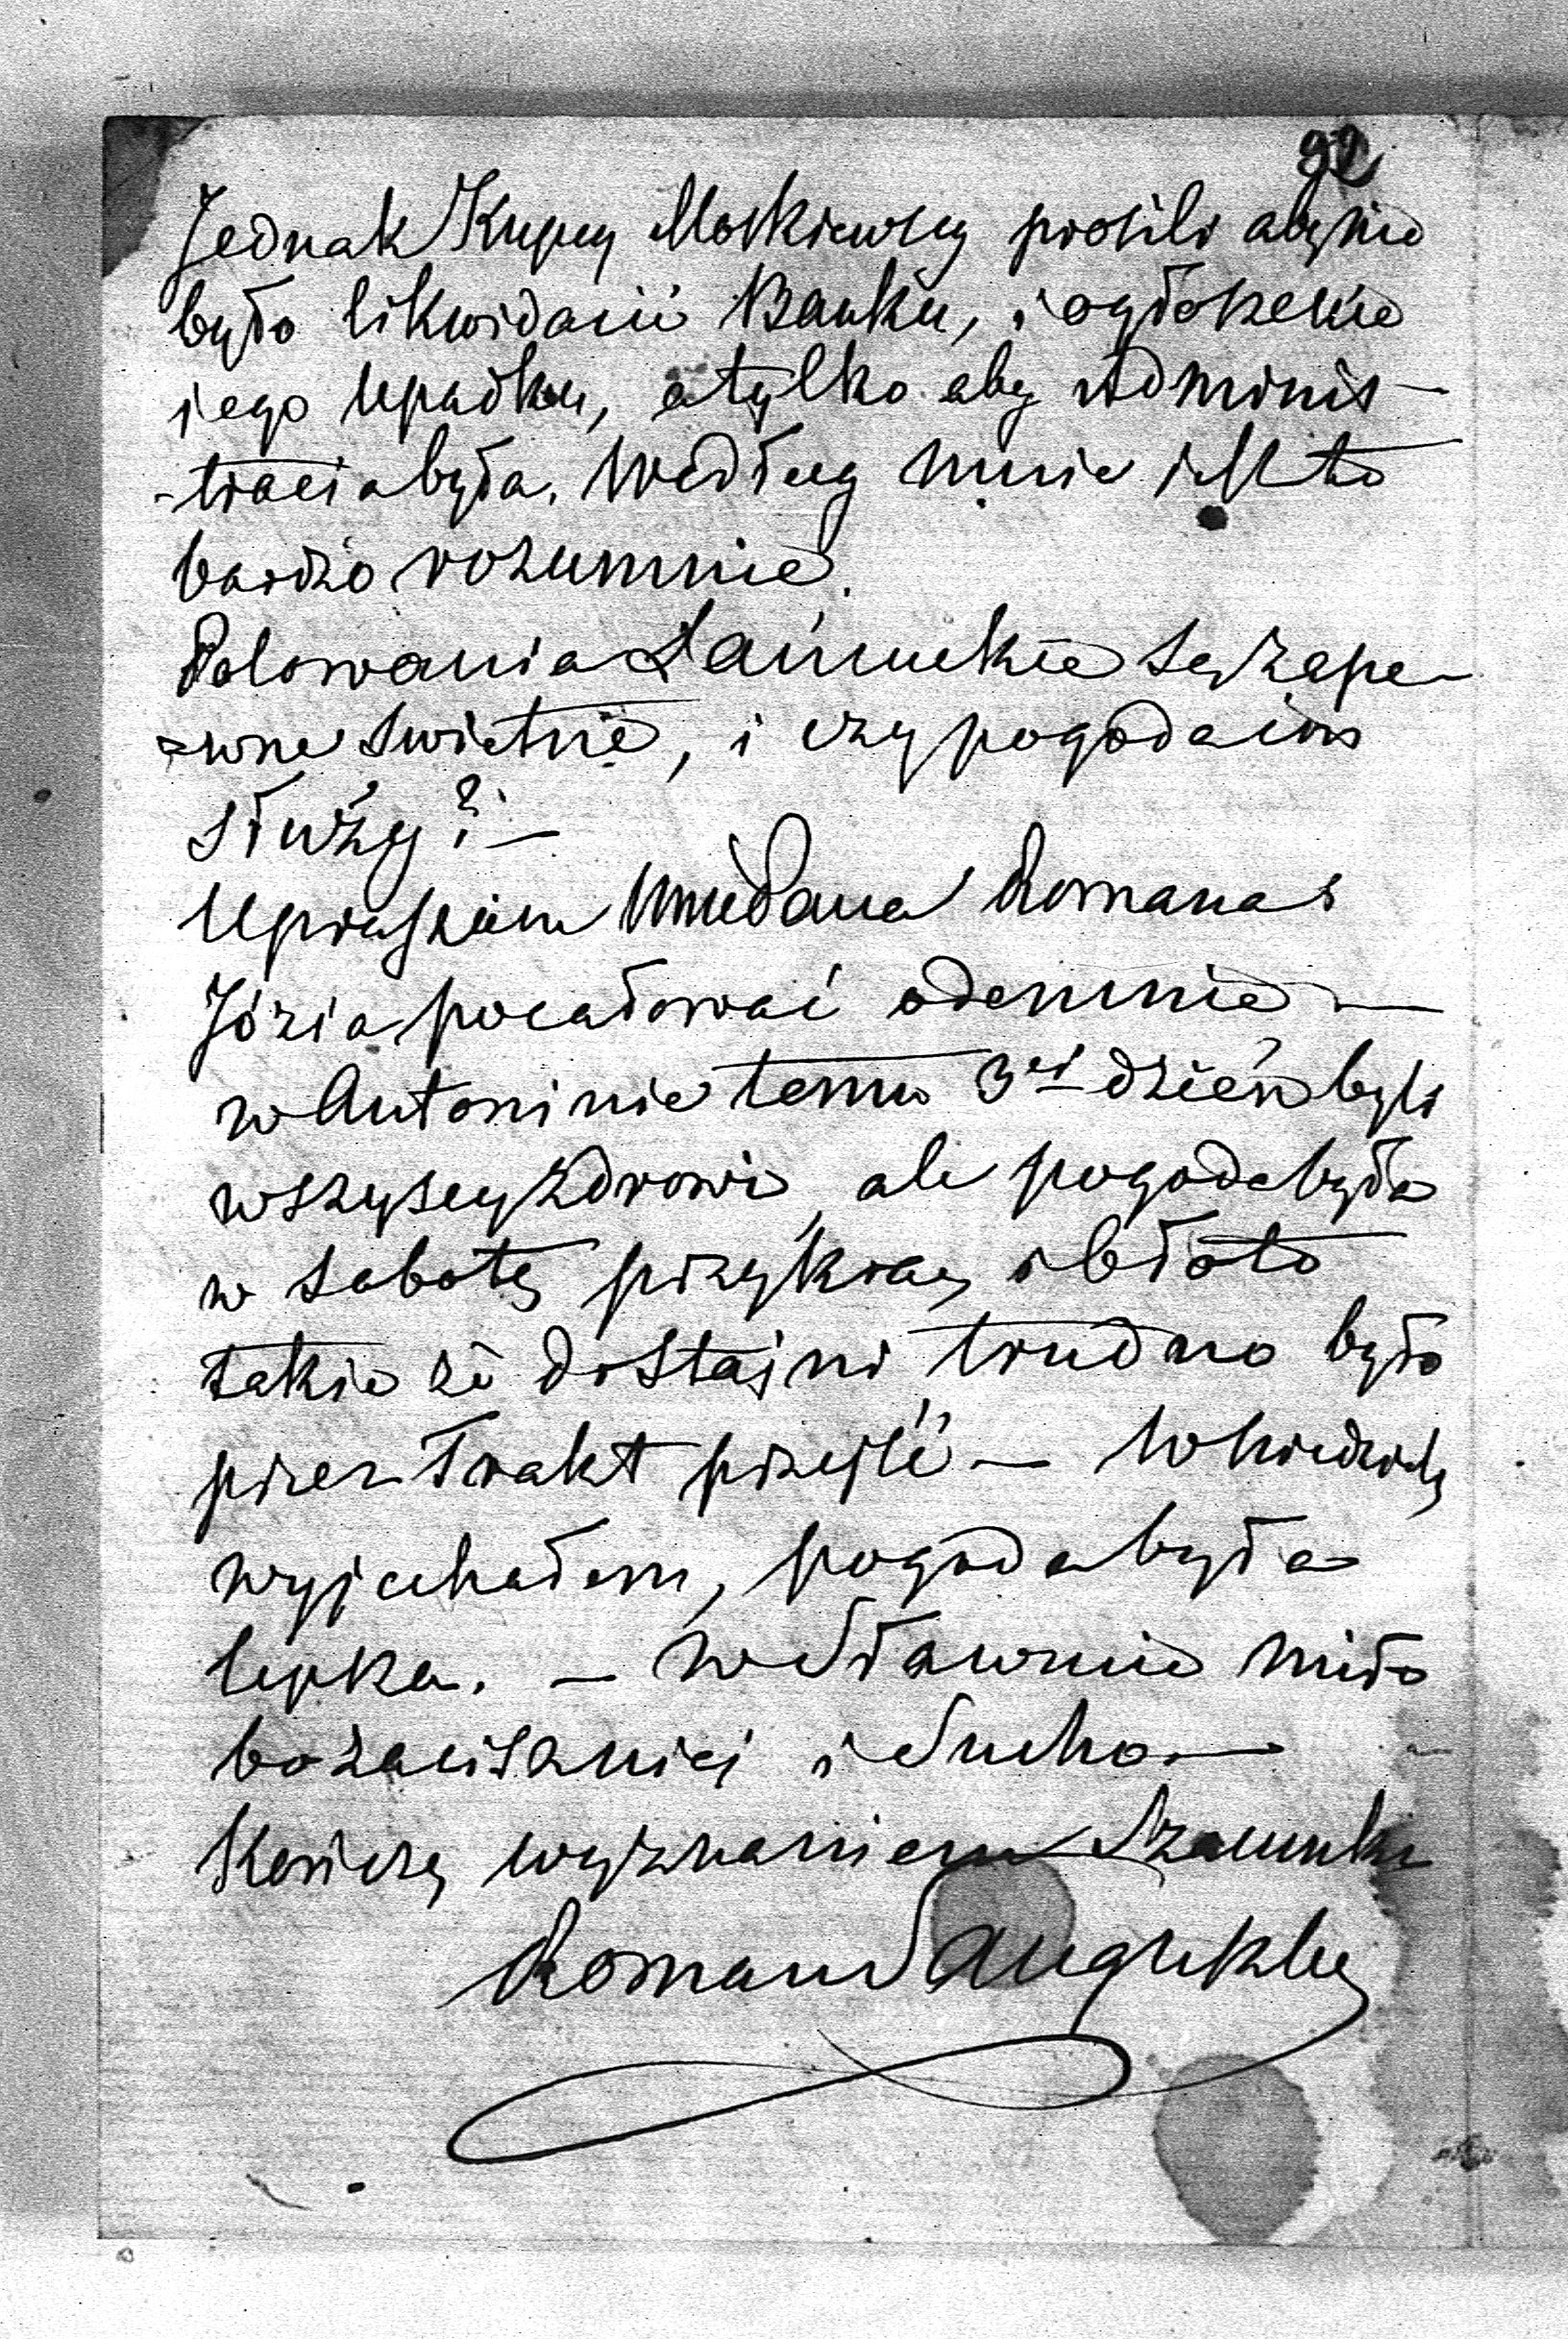 92
Jednak Kupcy Moskiewscy prosili aby nie
było likwidacii Banku, i ogłoszenie
jego upadku, a tylko aby adminis-
-tracia była. Według mnie jest to
bardzo rozumnie.
Polowania Łańcuckie są zape-
-wne swietne, i czy pogoda im
służy? —
Upraszam Pana Romana i
Józia pocałować odemnie —
w Antoninie temu 3ci dzień byli
wszyscy zdrowi, ale pogoda była
w sobotę przykra, i błoto
takie że do stajni trudno było
przez Trakt przejść — W niedzielę
wyjechałem, pogoda była
lepsza. — w Sławucie miło
bo zaciszniej i Sucho —
Kończę wyznaniem Szacunku
Roman Sanguszko